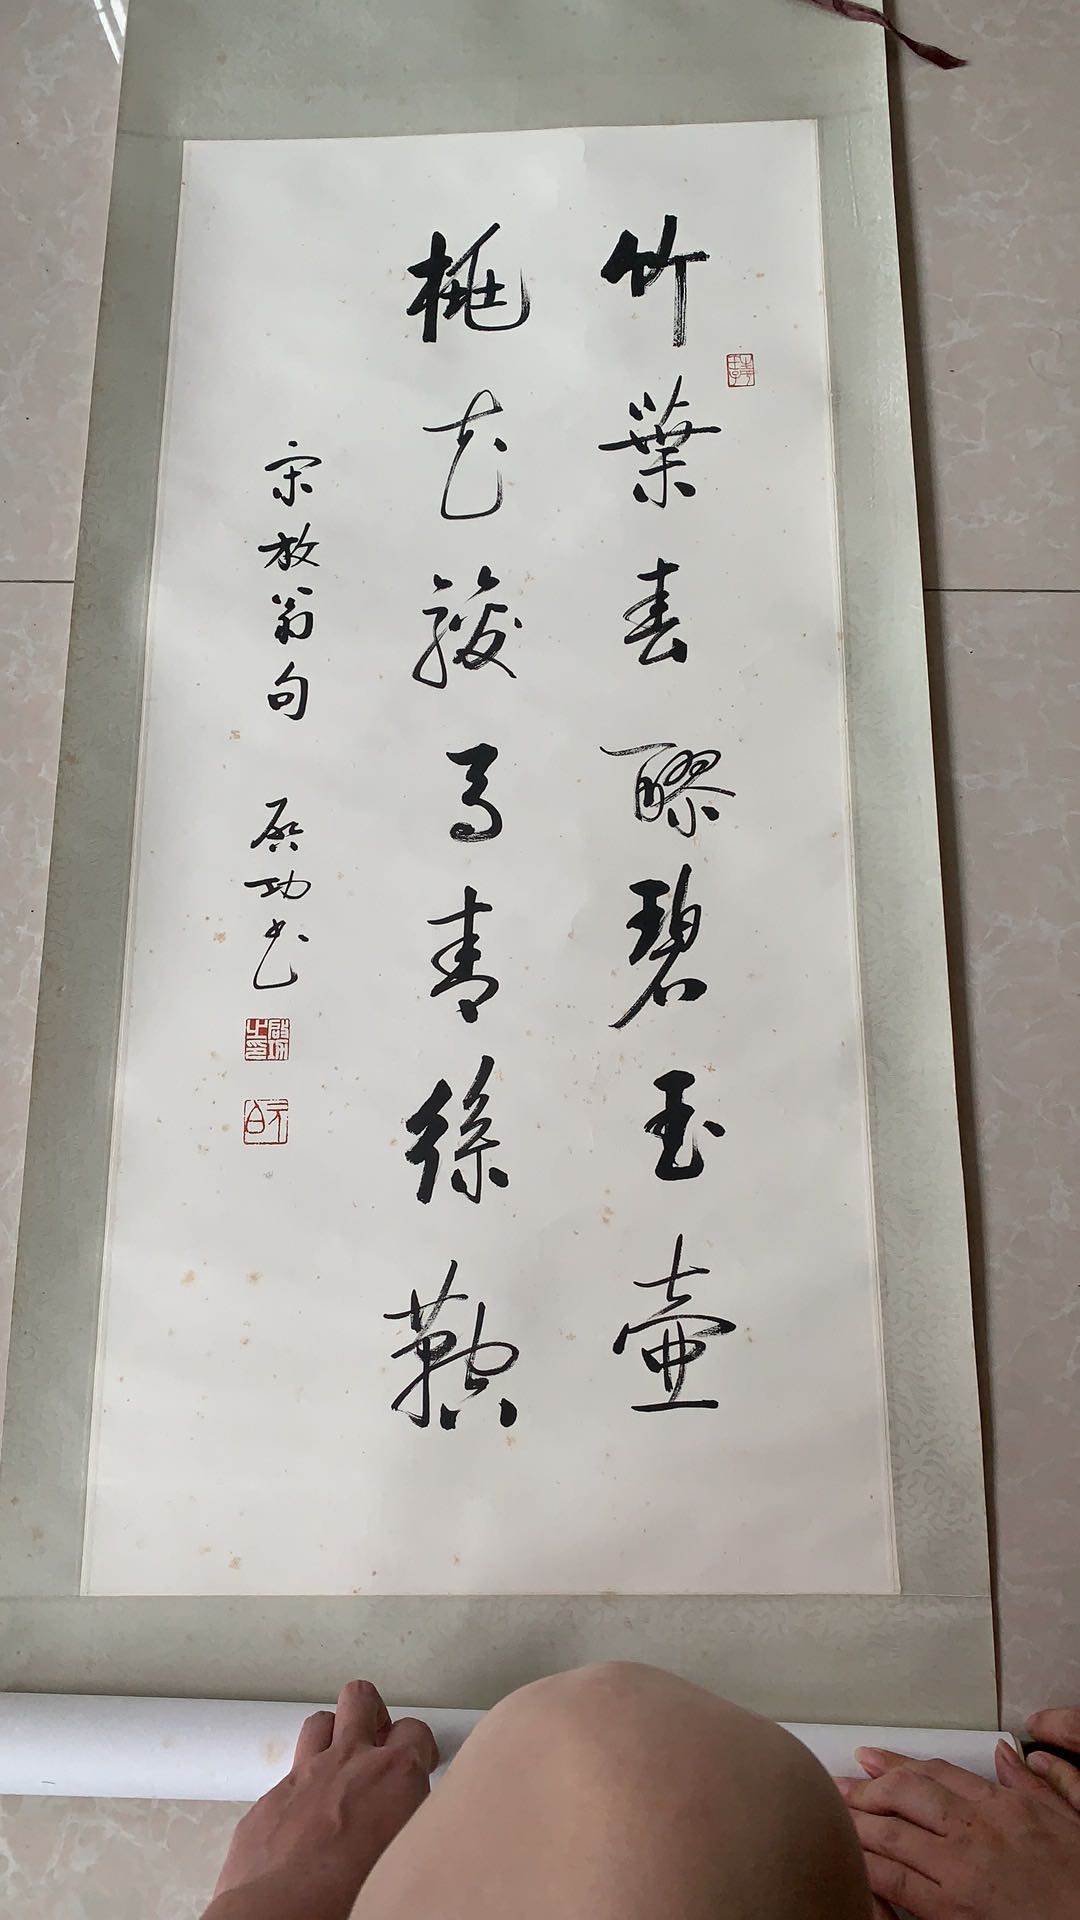 竹葉春醪碧玉壺
桃花駿馬青絲鞚
宋放翁句 啟功書
啟功之印
元白